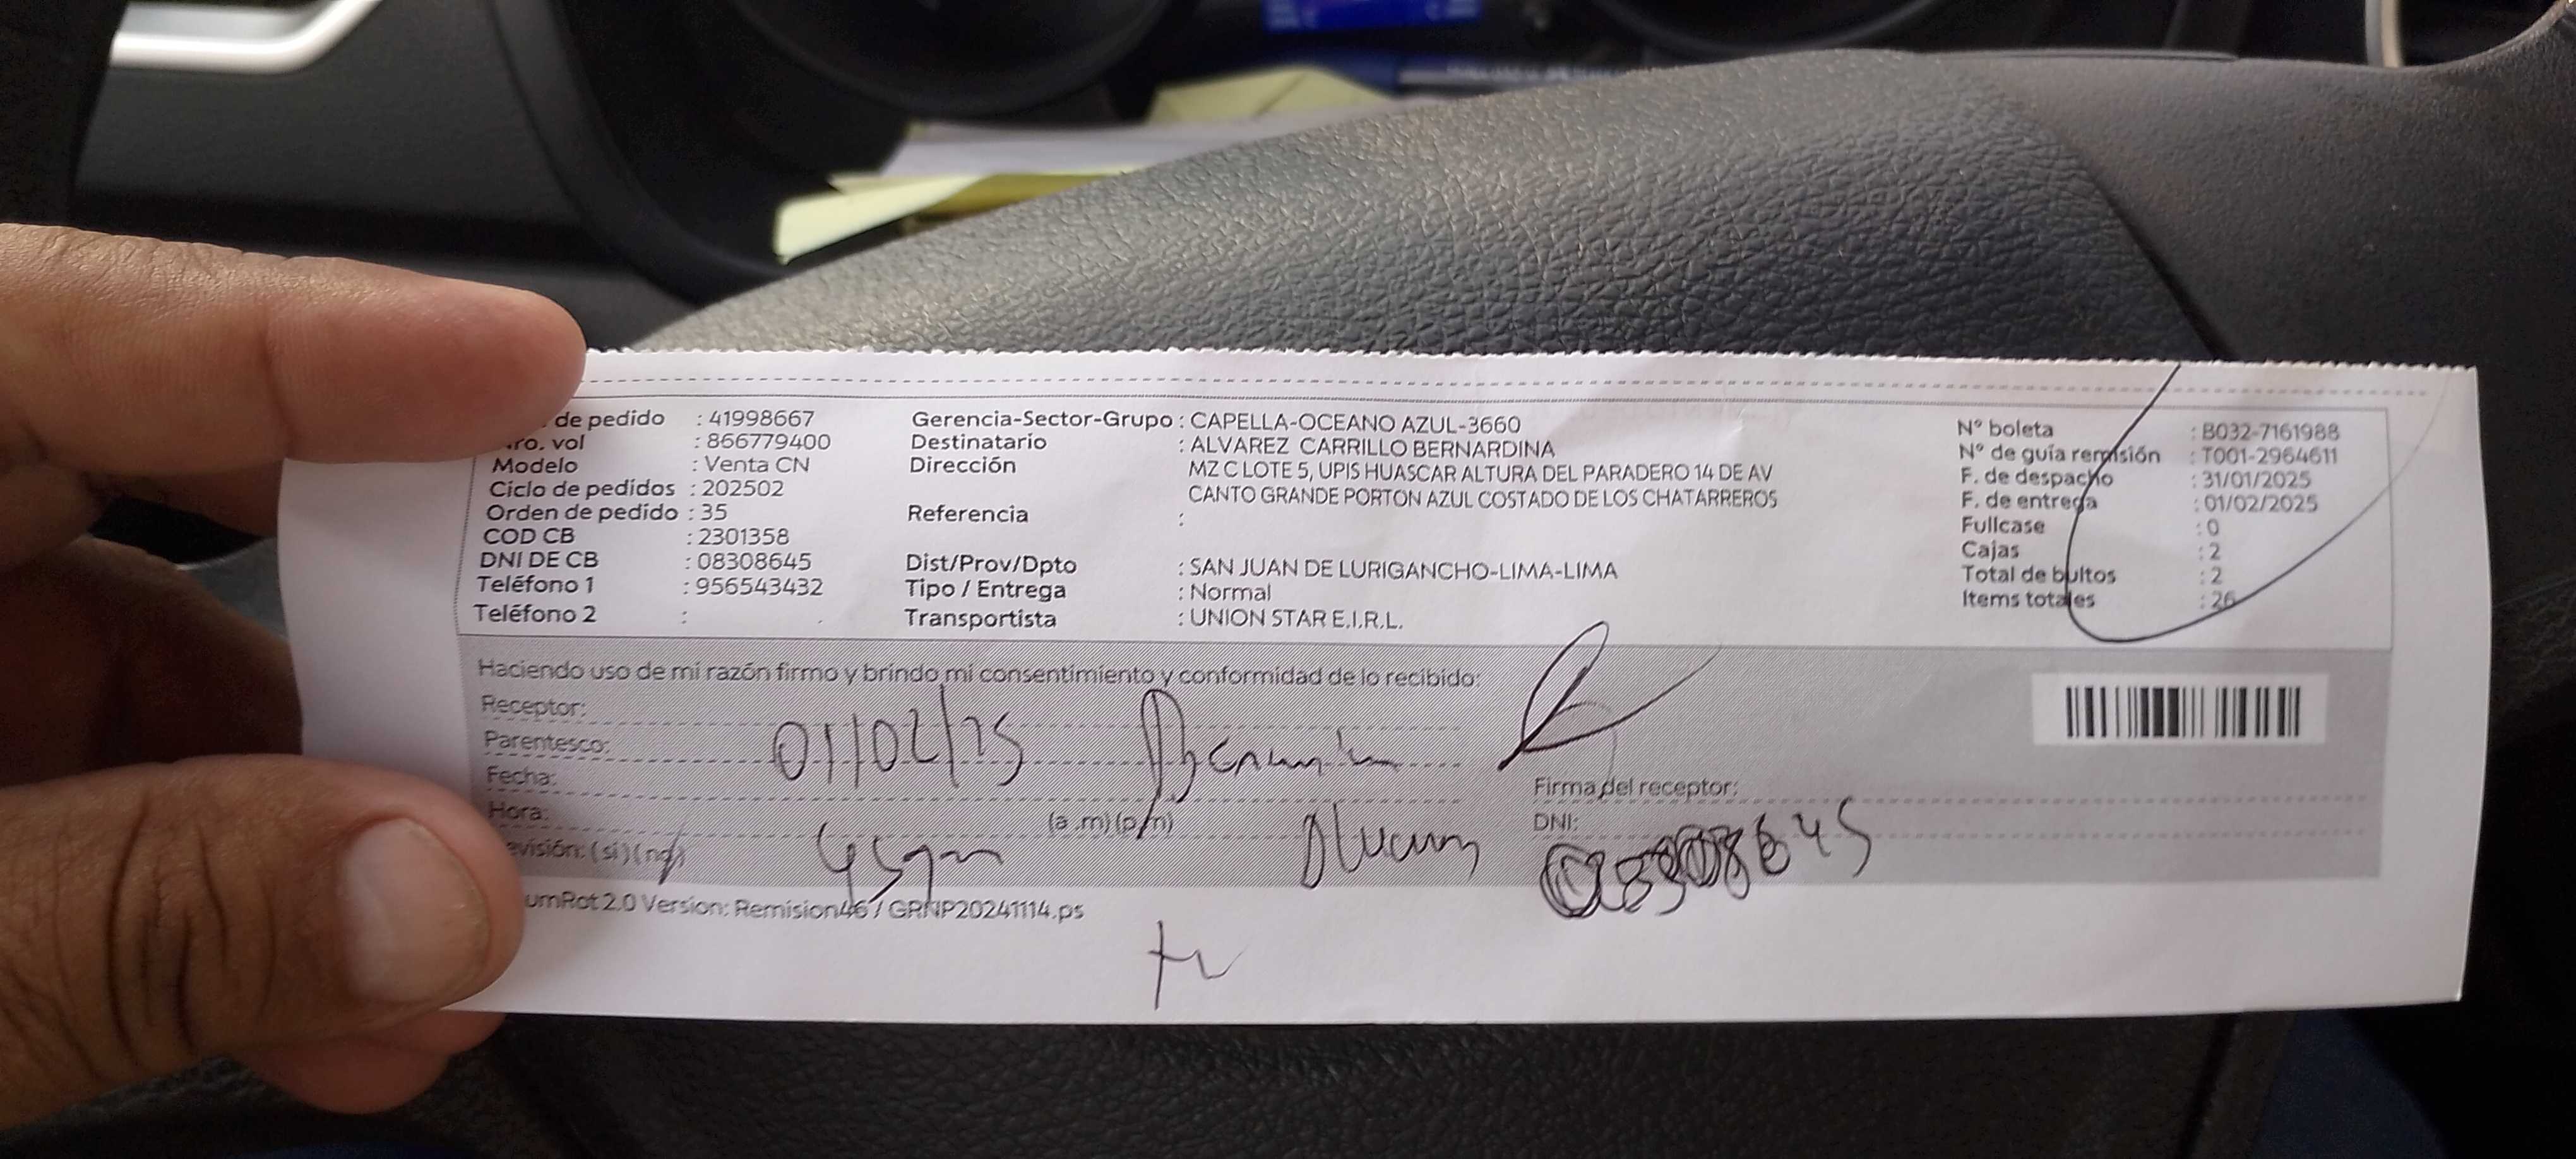 de pedido : 41998667
ro. vol : 866779400
Modelo : Venta CN
Ciclo de pedidos : 202502
Orden de pedido : 35
COD CB : 2301358
DNI DE CB : 08308645
Teléfono 1 : 956543432
Teléfono 2 :
Gerencia-Sector-Grupo : CAPELLA-OCEANO AZUL-3660
Destinatario : ALVAREZ CARRILLO BERNARDINA
Dirección MZ C LOTE 5, UPIS HUASCAR ALTURA DEL PARADERO 14 DE AV
CANTO GRANDE PORTON AZUL COSTADO DE LOS CHATARREROS
Referencia :
Dist/Prov/Dpto : SAN JUAN DE LURIGANCHO-LIMA-LIMA
Tipo / Entrega : Normal
Transportista : UNION STAR E.I.R.L.
N° boleta : B032-7161988
N° de guía remisión : T001-2964611
F. de despacho : 31/01/2025
F. de entrega : 01/02/2025
Fullcase : 0
Cajas : 2
Total de bultos : 2
Items totales : 26
Haciendo uso de mi razón firmo y brindo mi consentimiento y conformidad de lo recibido:
Receptor:
Parentesco:
01/02/25
Fecha:
Hora: (a .m) (p/m)
evisión: (si) (no)
Firma del receptor:
DNI:
08308645
umRot 2.0 Version: Remision46 / GRNP20241114.ps